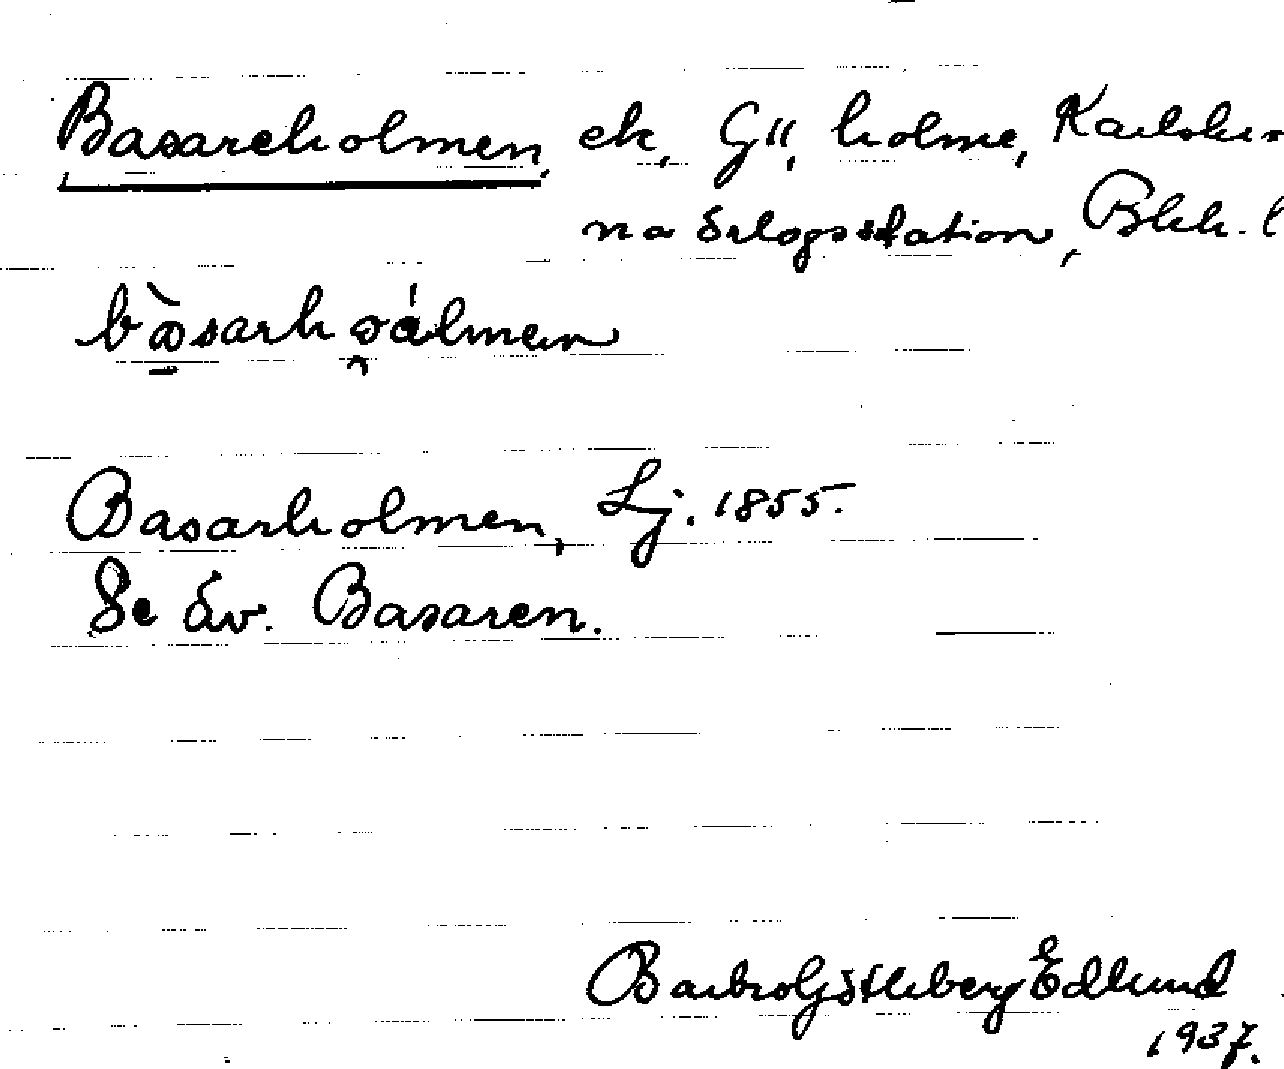 Basareholmen, ek, G11, holme, Karlskro-
na örlogsstation, Blek. l
bàsarhålmen
Basarholmen, Lj. 1855.
Se äv. Basaren.
Barbro Götlberg Edlund
1937.